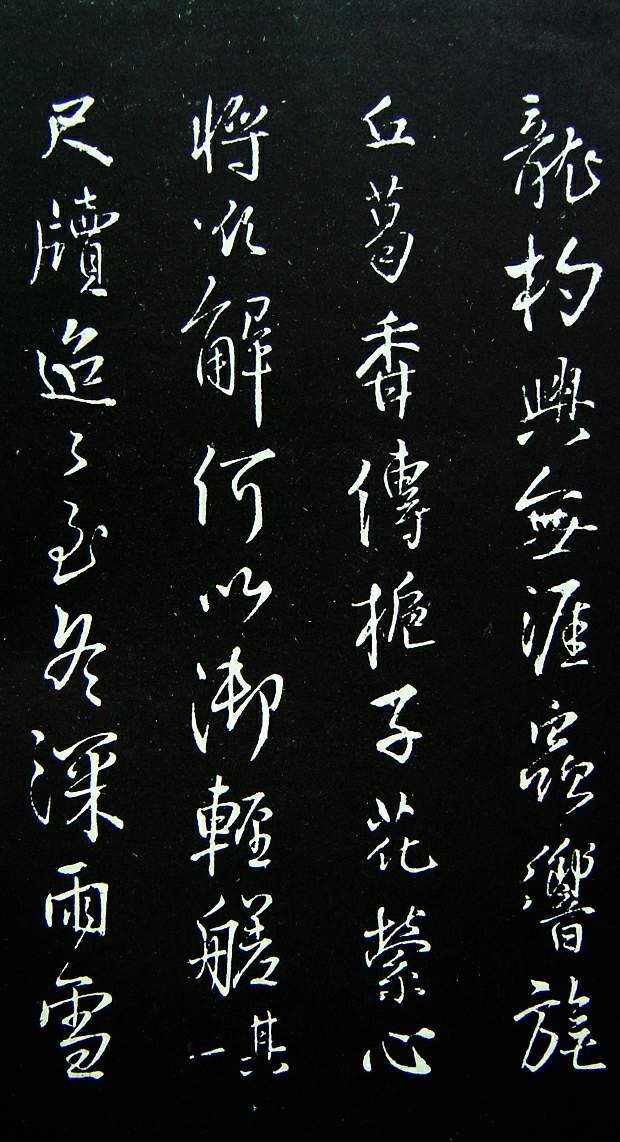 龍杓興無涯蟲響旋
丘葛香傳梔子花縈心
將欲解何以御輕艖其一
尺牘迢〻至冬深雨雪